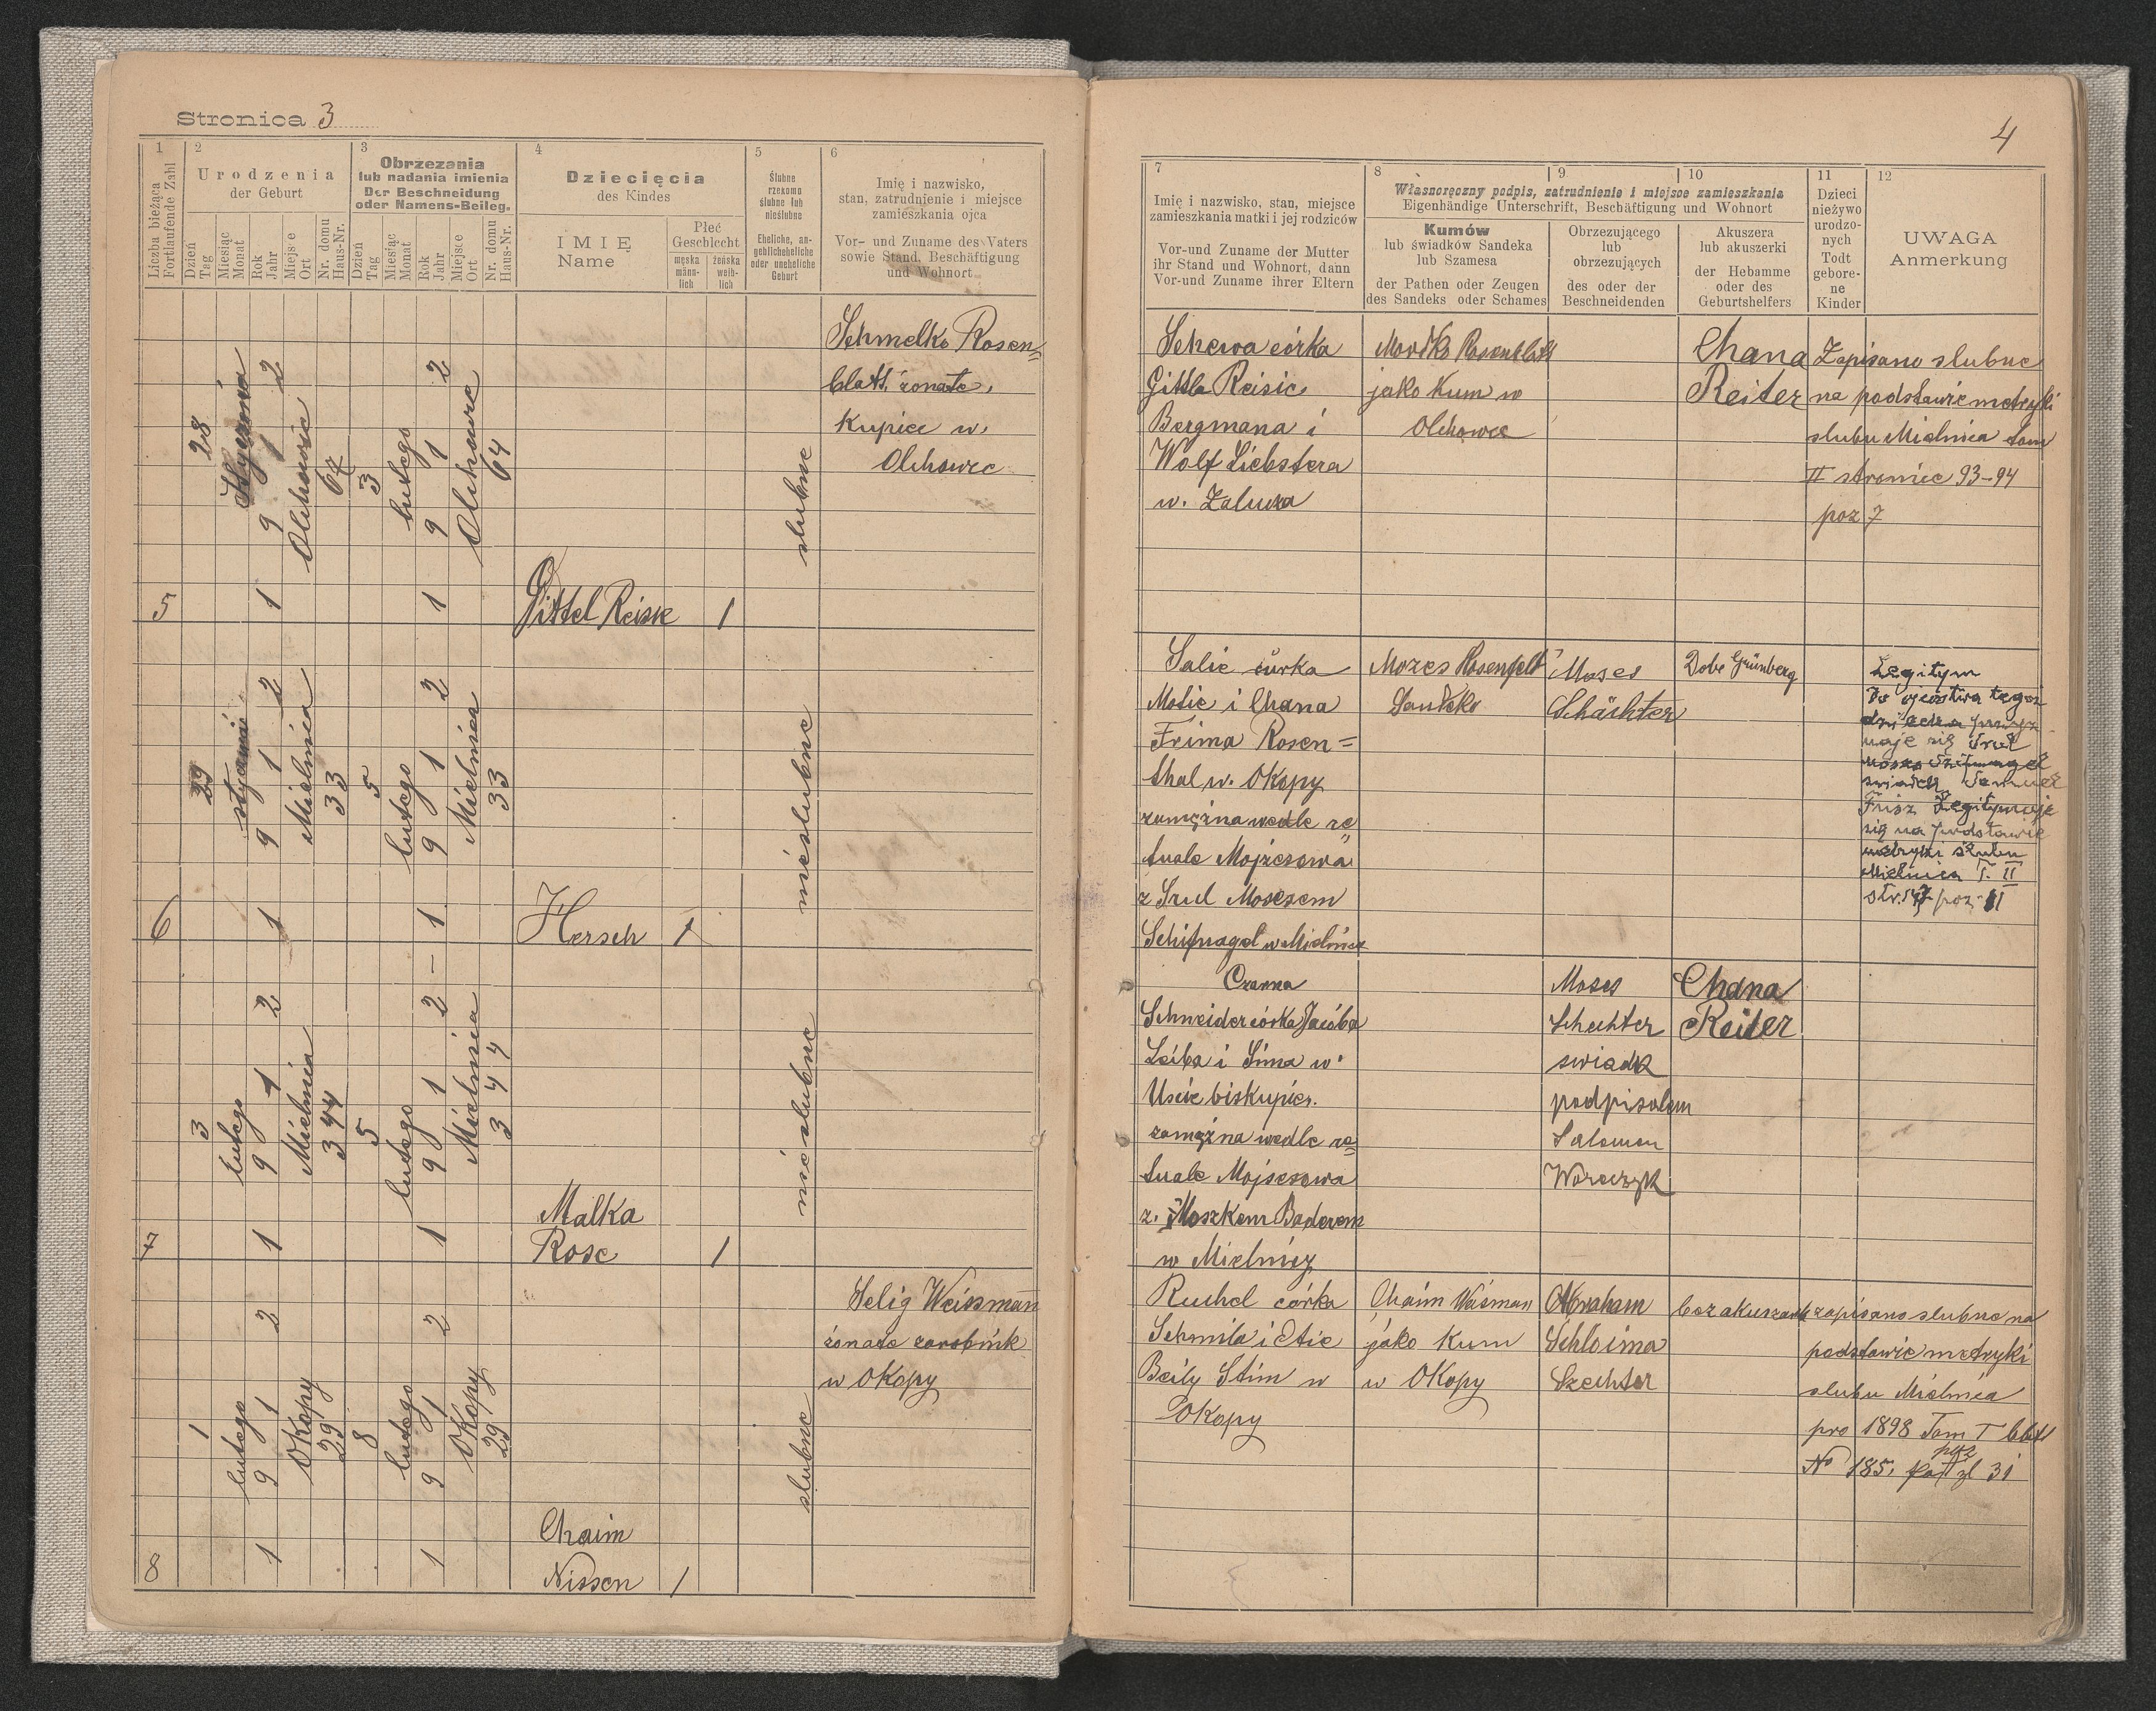 Stronica 3
1
Liczba bieżąca
Fortlaufende Zahl
2
Urodzenia
der Geburt
Dzień
Tag
Miesiąc
Monat
Rok
Jahr
Miejsce
Ort
Nr. domu
Haus-Nr.
3
Obrzezania
lub nadania imienia
Der Beschneidung
oder Namens-Beileg.
Dzień
Tag
Miesiąc
Monat
Rok
Jahr
Miejsce
Ort
Nr. domu
Haus-Nr.
4
Dziecięcia
des Kindes
IMIĘ
Name
Płeć
Geschlecht
męska
männ-
lich
żeńska
weib-
lich
5
Ślubne
rzekomo
ślubne lub
nieślubne
Eheliche, an-
geblicheheliche
oder uneheliche
Geburt
6
Imię i nazwisko,
stan, zatrudnienie i miejsce
zamieszkania ojca
Vor- und Zuname des Vaters
sowie Stand, Beschäftigung
und Wohnort
5
28
Stycznia
1 9 1 2
Olchowiec
67
3
lutego
1 9 1 2
Olchowiec
64
Gittel Reise
1
slubne
Schmelko Rosen=
blatt żonate,
Kupiec w.
Olchowec
6
29
stycznia
1 9 1 2
Mielnica
33
5
lutego
1 9 1 2
Mielnica
33
Hersch
1
nieslubne
7
3
lutego
1 9 1 2
Mielnica
344
5
lutego
1 9 1 2 -
Mielnica
344
Malka
Rose
1
nieslubne
8
1
lutego
1 9 1 2
Okopy
29
8
lutego
1 9 1 2
Okopy
29
Chaim
Nissen
1
slubne
Selig Weissmann
żonate zarobnik
w Okopy
4
7
Imię i nazwisko, stan, miejsce
zamieszkania matki i jej rodziców
Vor-und Zuname der Mutter
ihr Stand und Wohnort, dann
Vor-und Zuname ihrer Eltern
8
9
10
Własnoręczny podpis, zatrudnienie i miejsce zamieszkania
Eigenhändige Unterschrift, Beschäftigung und Wohnort
Kumów
lub świadków Sandeka
lub Szamesa
der Pathen oder Zeugen
des Sandeks oder Schames
Obrzezującego
lub
obrzezujących
des oder der
Beschneidenden
Akuszera
lub akuszerki
der Hebamme
oder des
Geburtshelfers
11
Dzieci
nieżywo
urodzo-
nych
Todt
gebore-
ne
Kinder
12
UWAGA
Anmerkung
Schewa córka
Gittla Reisie
Bergmana i
Wolf Liebstera
w. Zalucza
Mordko Rosenblatt
jako Kum w
Olchowce
Chana
Reiter
Zapisano slubne
na podstawie metryki
slubu Mielnica tom
II stronice 93-94
poz 7
Salie córka
Motie i Chana
Freima Rosen=
thal w. Okopy
zamężna wedle re
tuale Mojżesowa
z Srul Mosesem
Schifnagel w Mielnica
Mozes Rosenfeld
Sandeko
Moses
Schächter
Dobe Grünberg
Legitym
Do ojcostwa tegoż
dziecka przyz
naje się Srul
Moses Szifnagel
swiadek Samuel
Frisz Legitymuje
się na podstawie
metryki slubu
Mielnica T. II
poz. 11
Czarna
Schneider córka Jacóba
Leiba i Sima w.
Uscie biskupie.
zamężna wedle re=
tuale Mojsesowa
z. Moszkem Baderem
w Mielnicy
Moses
Schechter
swiadek
podpisalem
Salomon
Woroczyk
Chana
Reiter
Ruchel córka
Schmila i Etie
Beily Stim w
Okopy
Chaim Waisman
jako Kum
w Okopy
Abraham
Schloima
Szechter
bez akuszerki
zapisano slubne na
podstawie metryki
slubu Mielnica
pro 1898 Tom I
No 185. poz 31